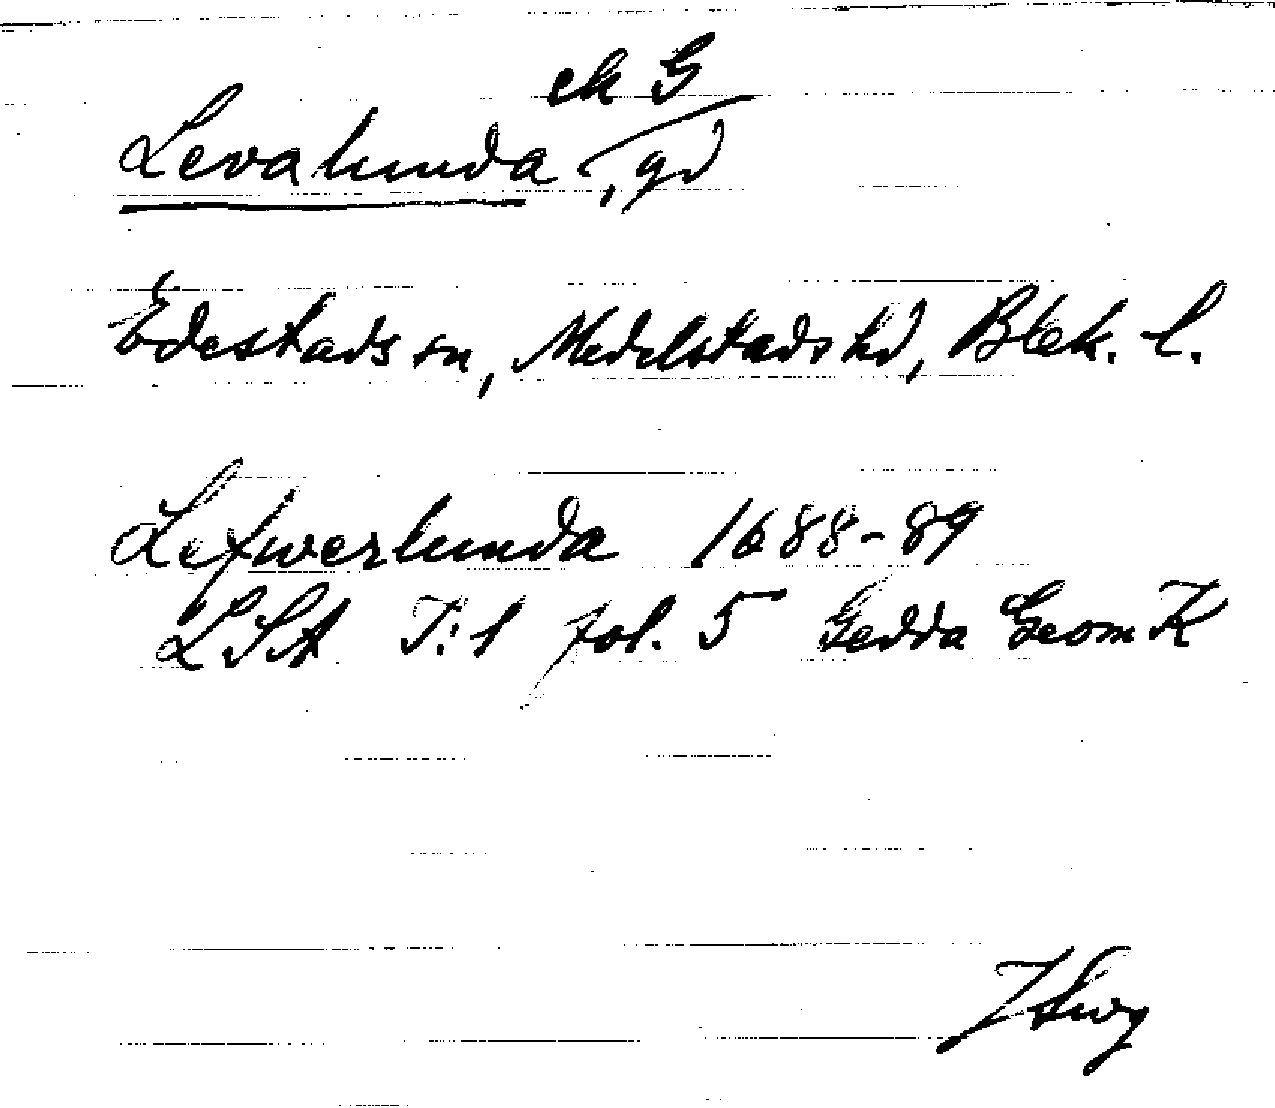 ek G
Levalunda, gd
Edestads sn, Medelstads hd, Blek. l.
Lefwerlunda 1688-89
LSA T:1 fol. 5 Gedda Geom K